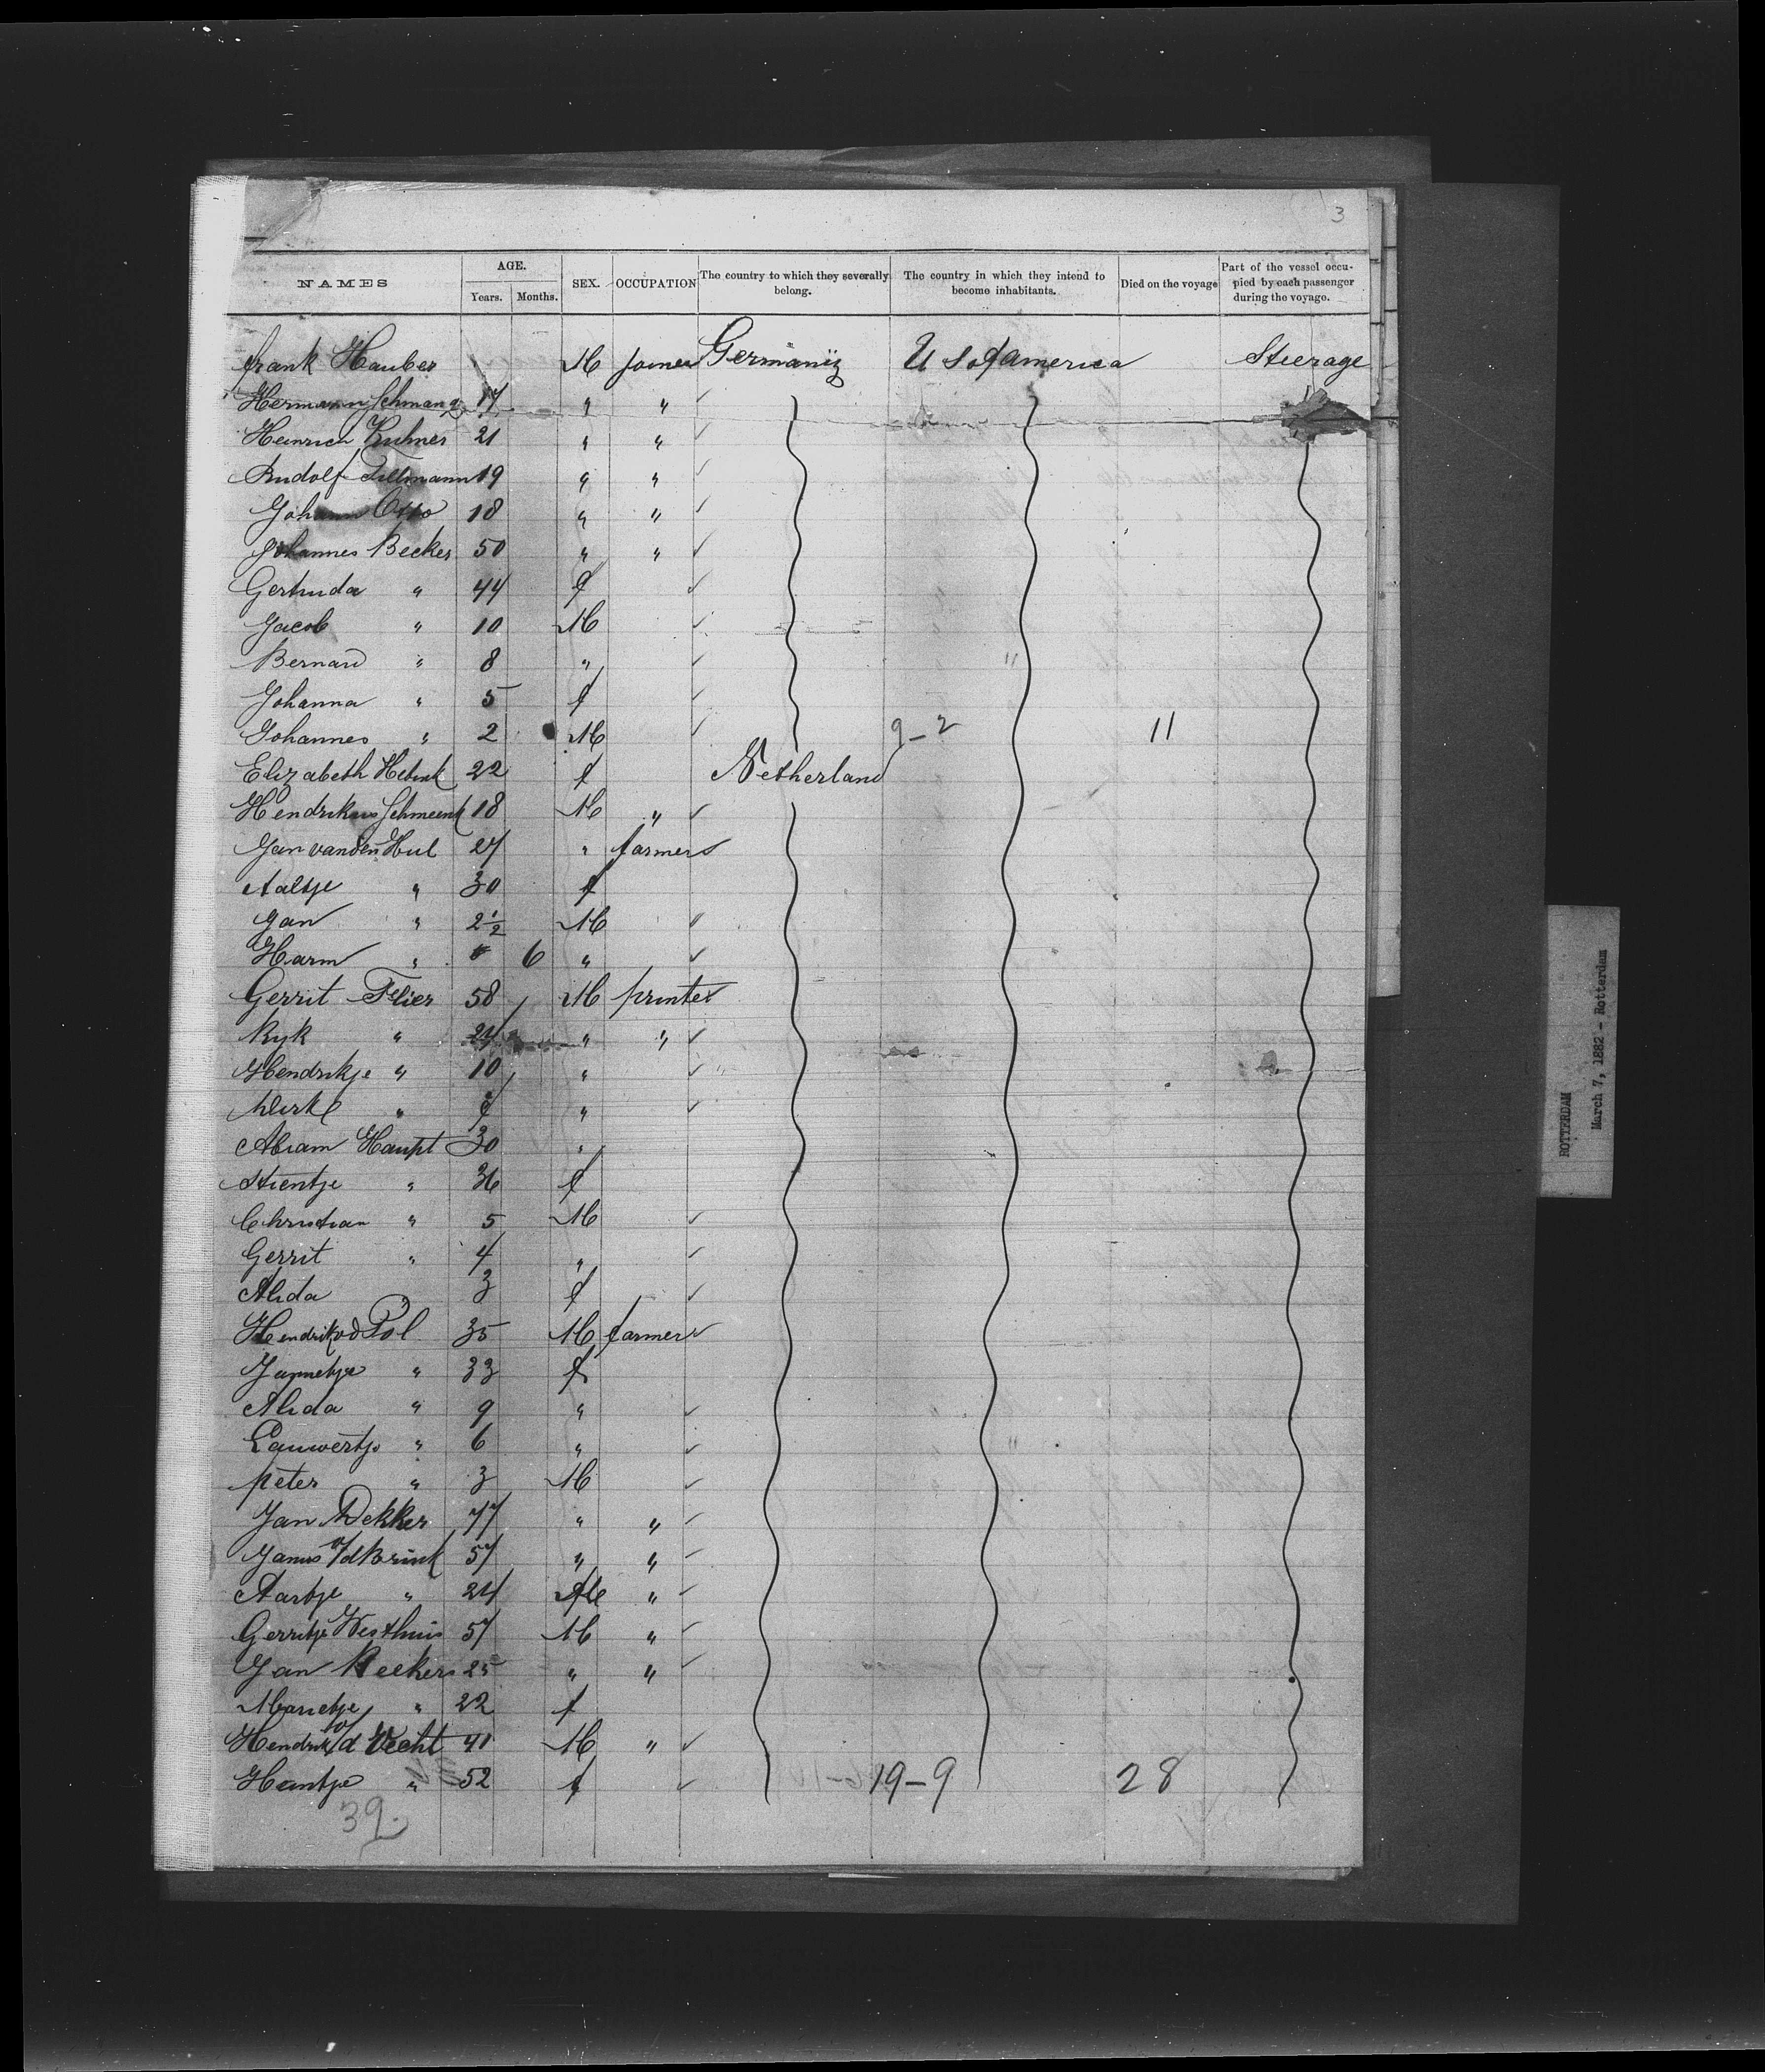 3
NAMES AGE. Years. Months. SEX. OCCUPATION The country to which they severally belong. The country in which they intend to become inhabitants. Died on the voyage Part of the vessel occupied by each passenger during the voyage.
Frank Hauber M joiner Germaniz U S of America Steerage
Hermann Schmanz 17 " "
Heinrich Kuhner 21 " "
Rudolf Tillmann 19 " "
Johann Otto 18 " "
Johannes Becker 50 " "
Gertruda " 44 f
Jacob " 10 M
Bernard " 8 " "
Johanna " 5 f
Johannes " 2 M 9-2 11
Elizabeth 22 f Netherland
Hendrikus Schmeenk 18 M "
Jan vanden Hul 27 " farmer
Aaltje " 30 f
Jan " 2½ M
Harm " 6 "
Gerrit Flier 58 M printer
Ryk " 24 " "
Hendrikje " 10 "
Dirk " "
Abram Haupt 30 "
Stientje " 36 f
Christian " 5 M
Gerrit " 4 "
Alida " 3 f
Hendrik vd Pol 35 M farmer
Jannetje " 33 f
Alida " 9 "
Lauwertje " 6 " "
peter " 3 M
Jan Dekker 77 " "
Janus v/d Brink 57 " "
Aartje " 24 "
Gerritje Westhuis 57 M "
Jan Beekers 25 " "
Marietje " 22 f
Hendrik v/d Vecht 41 M "
Hentje " 52 f 19-9 28
39.
ROTTERDAM
March 7, 1882 - Rotterdam